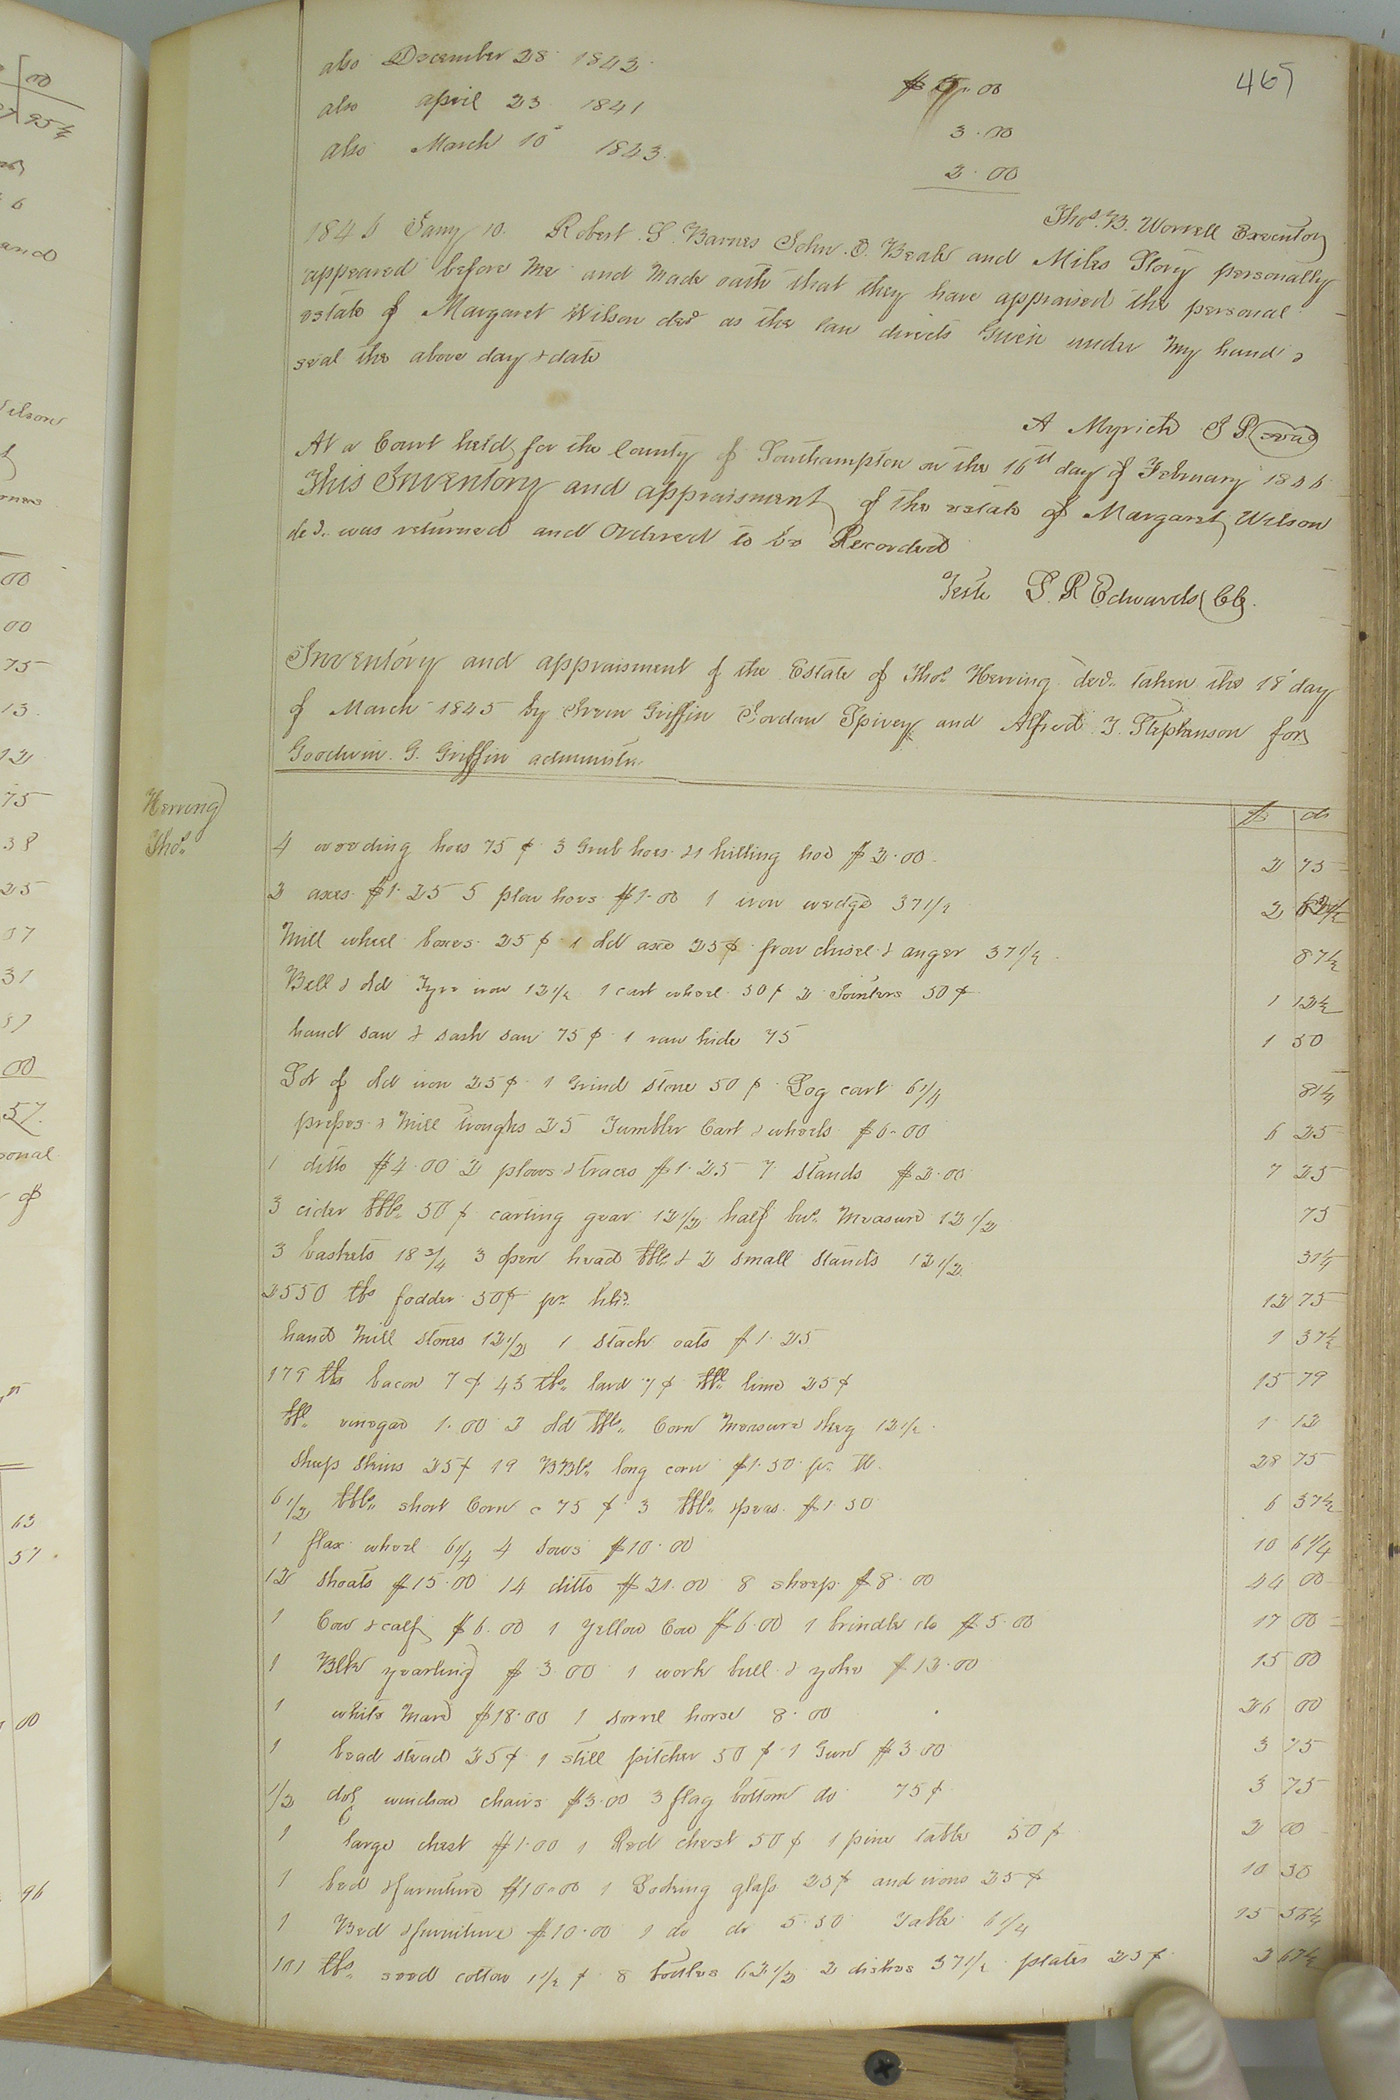 465
also December 28 1842 $ 5.00
also april 23 1841 3.00
also March 10th 1843. 2.00
Thos. B. Worrell Executor
1845 Jany 10. Robert S. Barnes John. D. Beale and Miles Story personally
appeared before me and made oath that they have appraised the personal
estate of Margaret Wilson decd as the law directs Given under my hand &
seal the above day & date
A Myrick J P (seal)
At a Court held for the County of Southampton on the 16th day of February 1846
This Inventory and appraisment of the estate of Margaret Wilson
decd. was returned and Ordered to be Recorded
Teste L. R Edwards Clk.
Inventory and appraisment of the Estate of Thos. Herring decd. taken the 18 day
of March 1845 by Irvin Griffin Jordan Spivey and Alfred J. Stephenson for
Goodwin. G. Griffin administr.
Herring
Thos.
$ cts
4 weeding hoes 75 ¢ 3 Grub hoes & 1 hilling hoe $ 2.00 2 75
2 axes $1.25 5 plow hoes $1.00 1 iron wedge 37 1/2 2 62 1/2
Mill wheel boxes 25 ¢ 1 old axe 25 ¢ frow chisel & auger 37 1/2 87 1/2
Bell & old Tyre iron 12 1/2 1 cart wheel 50 ¢ 2 Jointers 50 ¢ 1 12 1/2
hand saw & sash saw 75 ¢ 1 raw hide 75 1 50
Lot of old iron 25 ¢ 1 Grind stone 50 ¢ Log cart 6 1/4 81 1/4
& Mill troughs 25 Tumbler Cart & wheels $6.00 6 25
1 ditto $4.00 2 plows & traces $1.25 7 stands $2.00 7 25
3 cider bbls. 50 ¢ carting gear 12 1/2 half bus. measure 12 1/2 75
3 baskets 18 3/4 3 open head bbls & 2 small stands 12 1/2 31 1/4
2550 lbs fodder 50¢ pr. hhd. 12 75
hand Mill stones 12 1/2 1 stack oats $1.25 1 37 1/2
179 lbs bacon 7 ¢ 43 lbs. lard 7 ¢ bbl. lime 25 ¢ 15 79
bbl. vinegar 1.00 2 old bbls. Corn measure & keg 12 1/2 1 12
sheep skins 25 ¢ 19 BBls. long corn $1.50 pr. bl. 28 75
6 1/2 bbls. short Corn c 75 ¢ 3 bbls. peas $1.50 6 37 1/2
1 flax wheel 6 1/4 4 sows $10.00 10 6 1/4
12 shoats $15.00 14 ditto $21.00 8 sheep $8.00 44 00
1 Cow & calf $6.00 1 yellow Cow $6.00 1 brindle do $5.00 17 00
1 Blk yearling $ 3 00 1 work bull & yoke $12.00 15 00
1 white Mare $18.00 1 sorrel horse 8.00 26 00
1 bead stead 25 ¢ 1 still pitcher 50 ¢ 1 Gun $3 00 3 75
1/2 doz windsor chairs $3.00 3 flag bottom do 75 ¢ 3 75
1 large chest $1.00 1 Red chest 50 ¢ 1 pine table 50 ¢ 2 00
1 bed & furniture $10.00 1 Looking glass 25¢ andirons 25 ¢ 10 50
1 Bed & furniture $10.00 1 do do 5.50 Table 6 1/4 15 56 1/4
101 lbs. seed cotton 1 1/2 ¢ 8 bottles 62 1/2 2 dishes 37 1/2 plates 25 ¢ 2 67 1/2